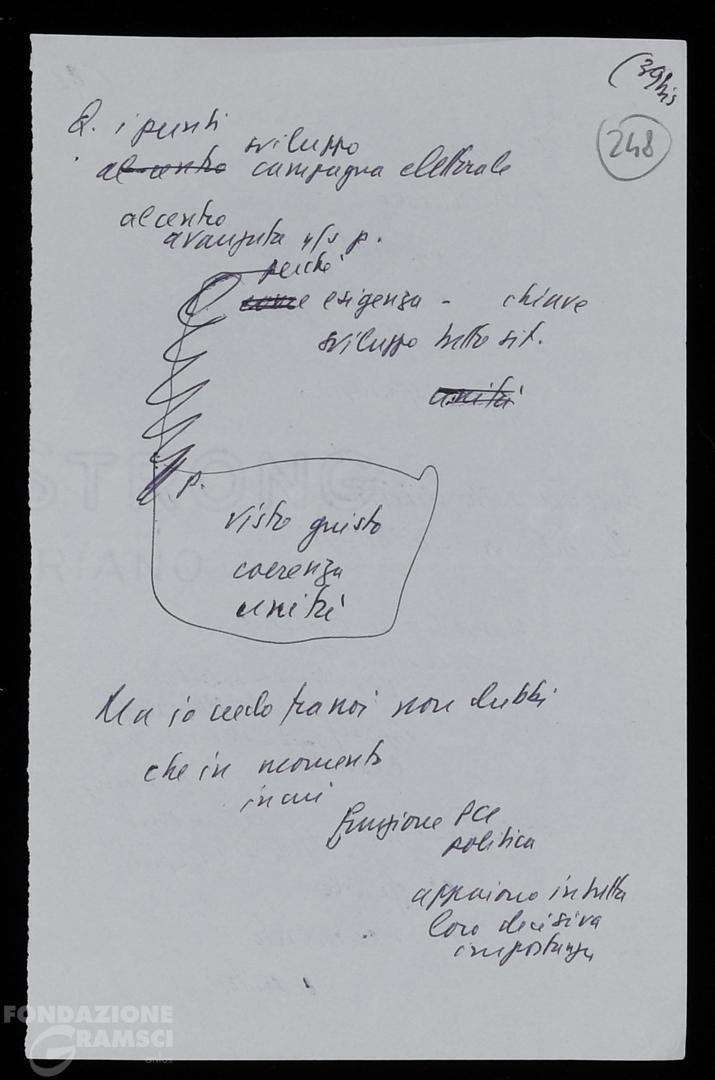 (39bis
248
Q. i punti
sviluppo
al centro campagna elettorale
al centro
avanzata n/s p.
perché
come esigenza - chiave
sviluppo tutta sit.
unità
p.
visto giusto
coerenza
unità
Ma io credo tra noi non dubbi
che in momento
in cui
funzione PCI
politica
appaiono in tutta
loro decisiva
importanza
STRONG
FONDAZIONE
GRAMSCI
onlus